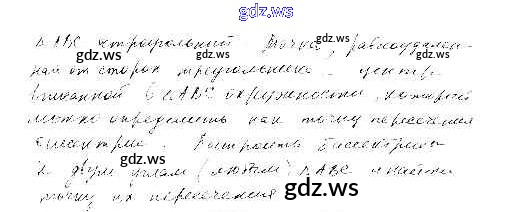 gdz.ws
△ABC - треугольный. Точка, равноудален-
ная от сторон треугольника - центр
вписанной в △ABC окружности, который
можно определить как точку пересечения
биссектрис. Построить биссектрисы
к двум углам (любым) △ABC и найти
точку их пересечения
gdz.ws
gdz.ws
gdz.ws
gdz.ws
gdz.ws
gdz.ws